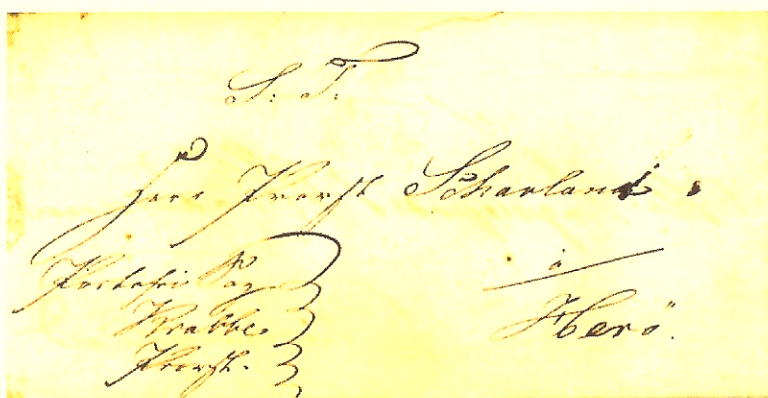 S. T.
Herr Provst Scharland
à
Herö.
Portofrie Sag.
Krabbe
Provst.